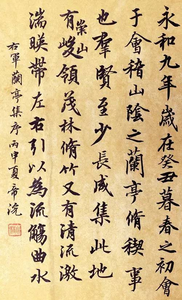 永和九年歲在癸丑暮春之初會
于會稽山陰之蘭亭脩稧事
也群賢至少長咸集此地
有崇山峻領茂林脩竹又有清流激
湍暎帶左右引以為流觴曲水
右軍蘭亭集序丙申夏